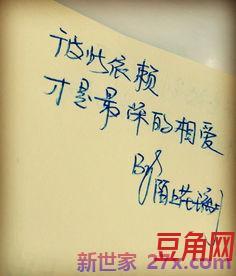 彼此依赖
才是最深的相爱
By:陌上花开
豆角网
新世家 27x.com